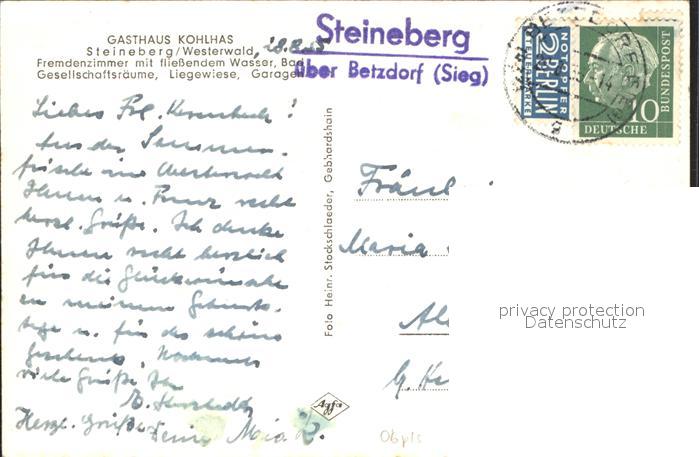 GASTHAUS KOHLHAS
Steineberg/Westerwald,
Fremdenzimmer mit fließendem Wasser, Bad
Gesellschaftsräume, Liegewiese, Garagen
Steineberg
über Betzdorf (Sieg)
NOTOPFER
2 BERLIN
STEUERMARKE
10
DEUTSCHE
BUNDESPOST
Liebes Frl.
Aus der Sommer-
frische im Westerwald
Ihnen u. recht
herzl. Grüße. Ich danke
Ihnen recht herzlich
für die Glückwünsche
zu meinem Geburts-
tage u. für das schöne
Geschenk. Nochmals
viele Grüße, Ihr
Herzl. Grüße
Deine Mia
Foto Heinr. Stockschlaeder, Gebhardshain
Agfa
Fräul
Maria
privacy protection
Datenschutz